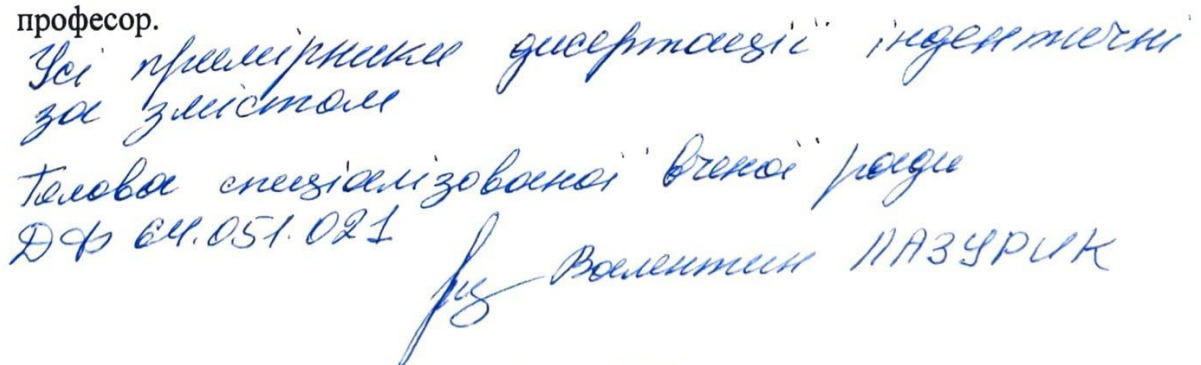 професор.
Усі примірники дисертації індентичні
за змістом
Голова спеціалізованої вченої ради
ДФ 64.051.021
Валентин ЛАЗУРИК